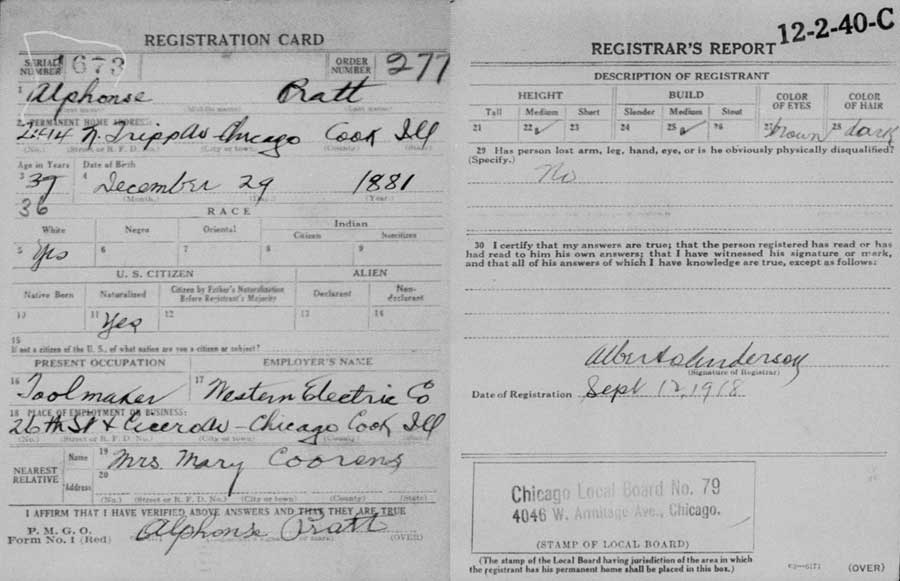 REGISTRATION CARD
SERIAL NUMBER 1673 ORDER NUMBER 277
1 Alphonse Pratt
(First name) (Middle name) (Last name)
2 PERMANENT HOME ADDRESS:
2414 N. Tripp Av Chicago Cook Ill
(No.) (Street or R. F. D. No.) (City or town) (County) (State)
Age in Years Date of Birth
3 37 4 December 29 1881
(Month.) (Day.) (Year.)
36
RACE
White Negro Oriental Indian
Citizen Noncitizen
5 Yes 6 7 8 9
U. S. CITIZEN ALIEN
Native Born Naturalized Citizen by Father's Naturalization Before Registrant's Majority Declarant Non-declarant
10 11 Yes 12 13 14
15
If not a citizen of the U. S., of what nation are you a citizen or subject?
PRESENT OCCUPATION EMPLOYER'S NAME
16 Toolmaker 17 Western Electric Co
18 PLACE OF EMPLOYMENT OR BUSINESS:
26th St & Cicero Av - Chicago Cook Ill
(No.) (Street or R. F. D. No.) (City or town) (County) (State)
NEAREST RELATIVE Name 19 Mrs. Mary Coorens
Address 20
(No.) (Street or R. F. D. No.) (City or town) (County) (State)
I AFFIRM THAT I HAVE VERIFIED ABOVE ANSWERS AND THAT THEY ARE TRUE
P. M. G. O.
Form No. 1 (Red) Alphonse Pratt (OVER)
REGISTRAR'S REPORT 12-2-40-C
DESCRIPTION OF REGISTRANT
HEIGHT BUILD COLOR OF EYES COLOR OF HAIR
Tall Medium Short Slender Medium Stout
21 22 23 24 25 26 27 brown 28 dark
29 Has person lost arm, leg, hand, eye, or is he obviously physically disqualified?
(Specify.) No
30 I certify that my answers are true; that the person registered has read or has
had read to him his own answers; that I have witnessed his signature or mark,
and that all of his answers of which I have knowledge are true, except as follows:
Albert Anderson
(Signature of Registrar)
Date of Registration Sept 12, 1918
Chicago Local Board No. 79
4046 W. Armitage Ave., Chicago.
(STAMP OF LOCAL BOARD)
(The stamp of the Local Board having jurisdiction of the area in which
the registrant has his permanent home shall be placed in this box.)
(OVER)